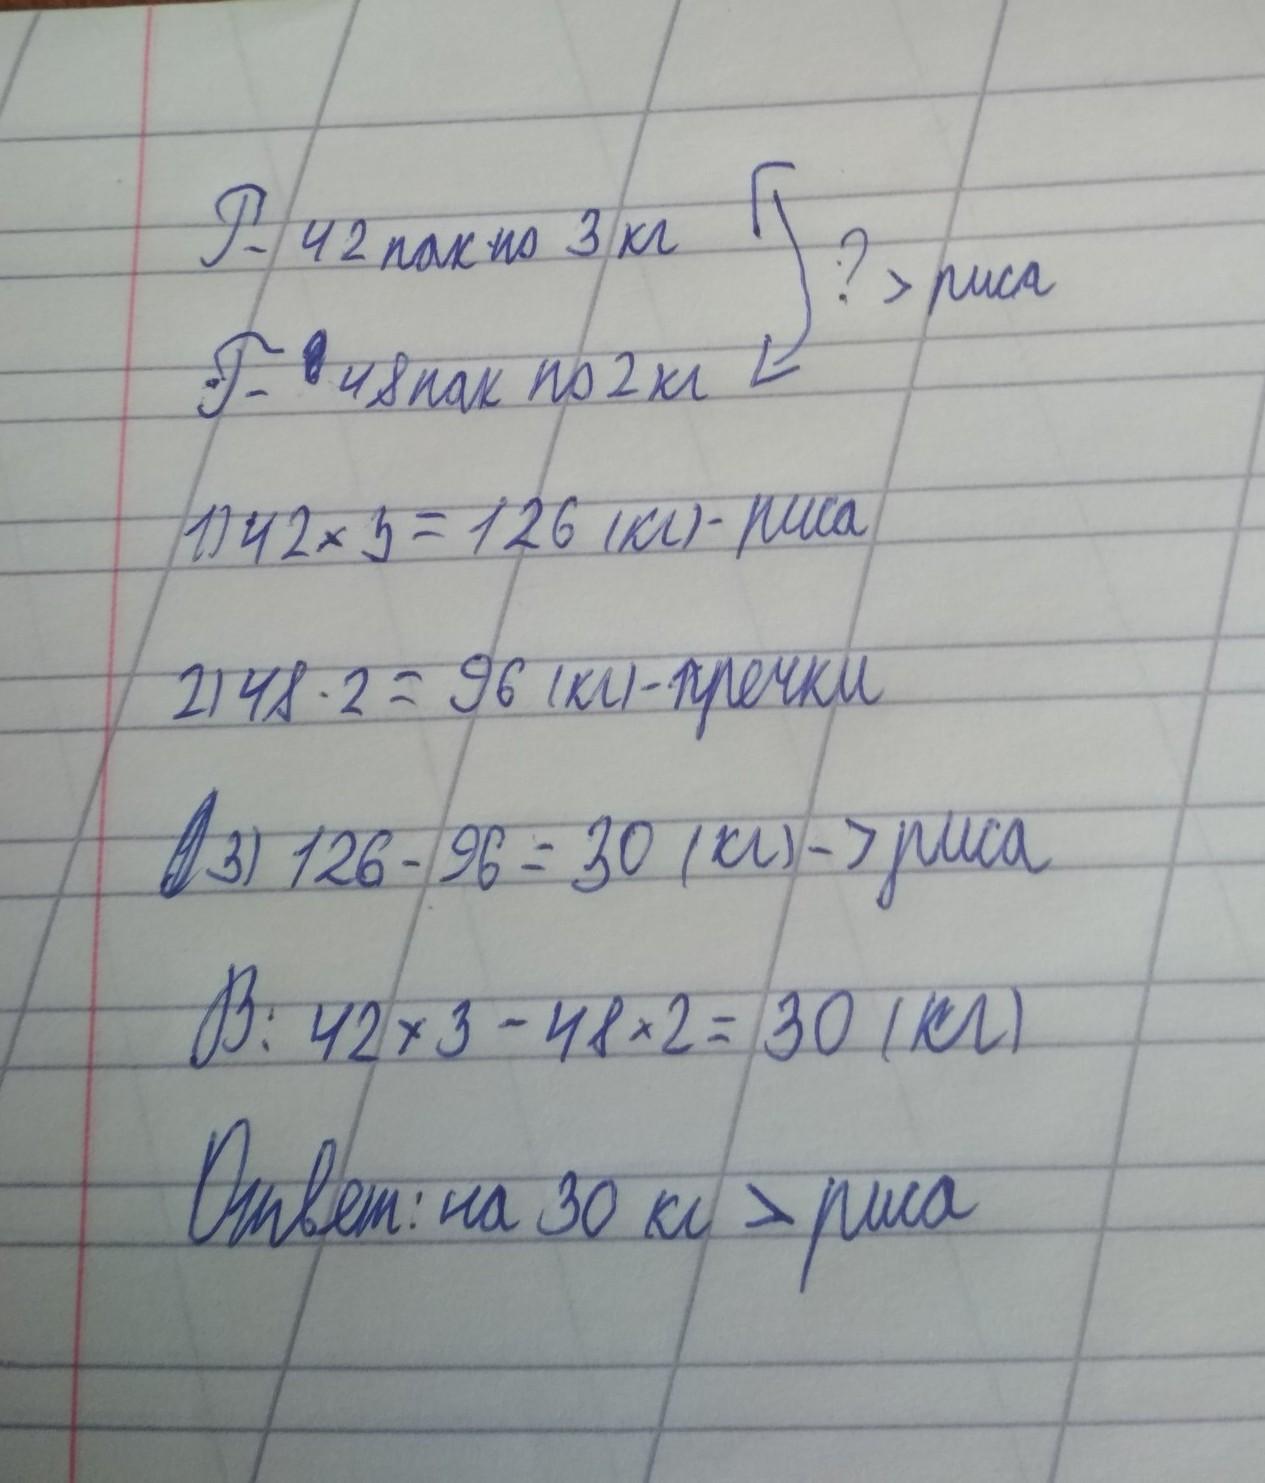 Р- 42 пак по 3 кг
? > риса
Г- 48 пак по 2 кг
1) 42 × 3 = 126 (кг) - риса
2) 48 · 2 = 96 (кг) - гречки
3) 126 - 96 = 30 (кг) - > риса
В: 42 × 3 - 48 × 2 = 30 (кг)
Ответ: на 30 кг > риса